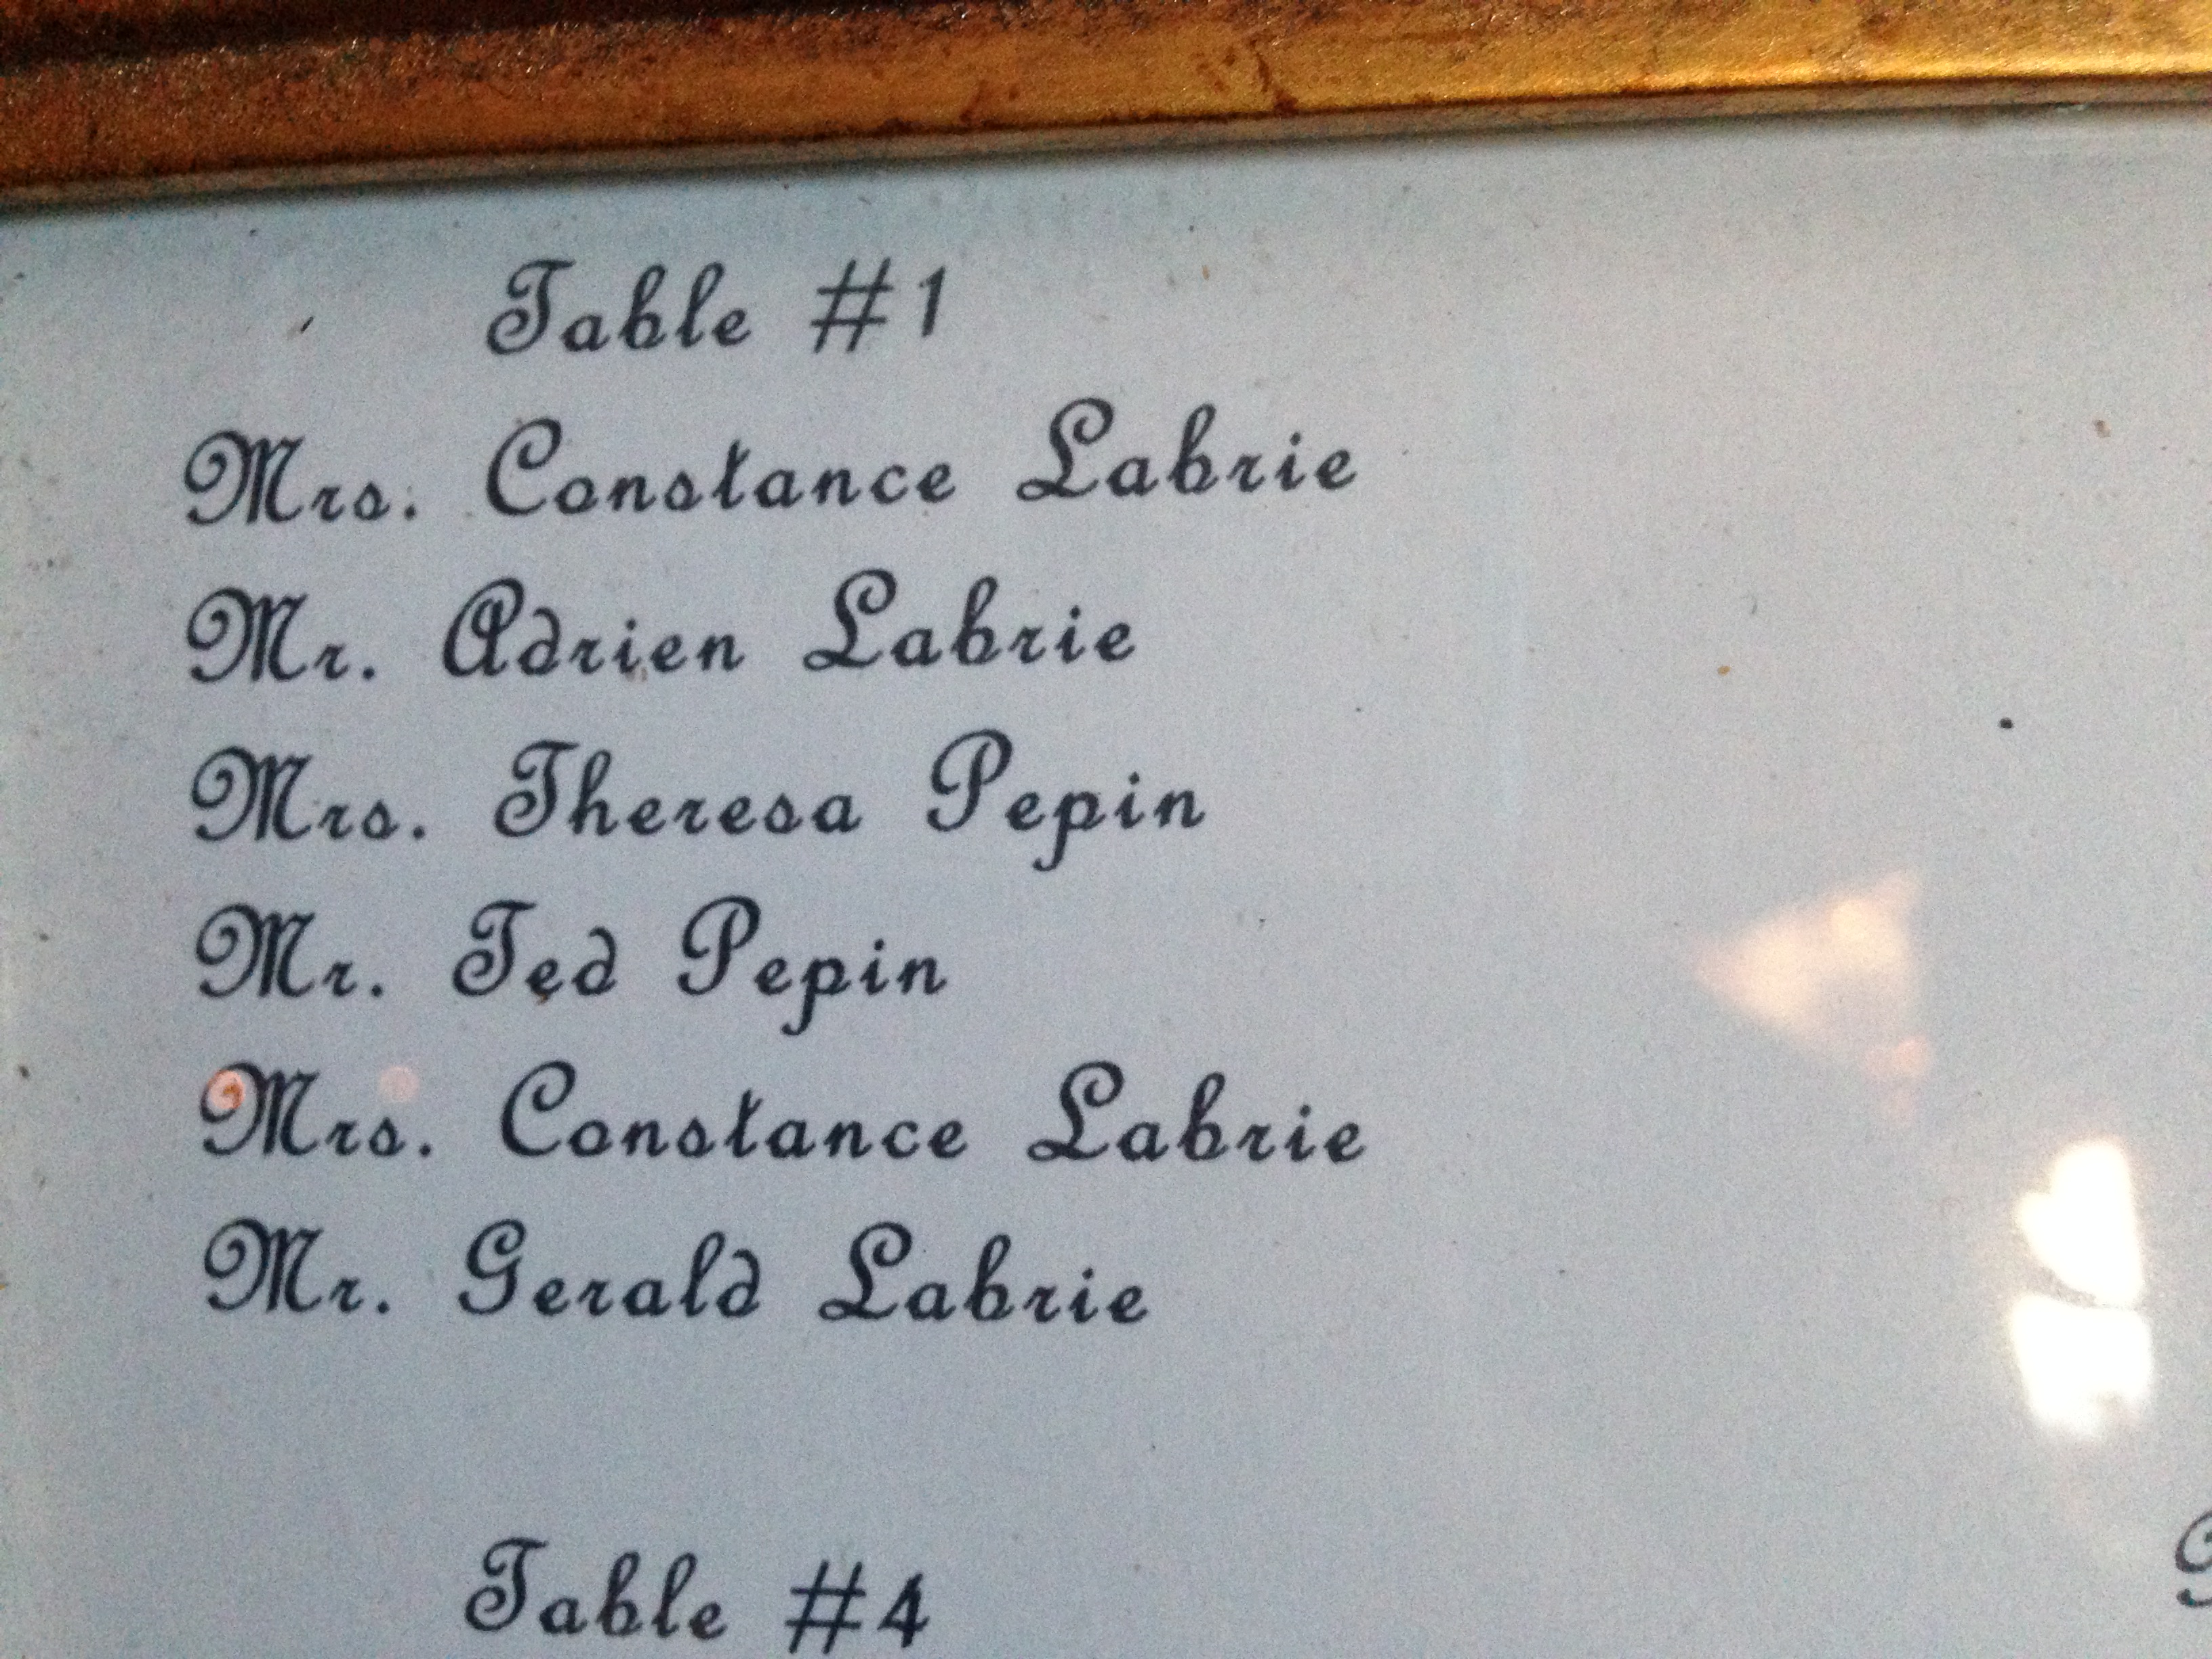 Table #1
Mrs. Constance Labrie
Mr. Adrien Labrie
Mrs. Theresa Pepin
Mr. Ted Pepin
Mrs. Constance Labrie
Mr. Gerald Labrie
Table #4